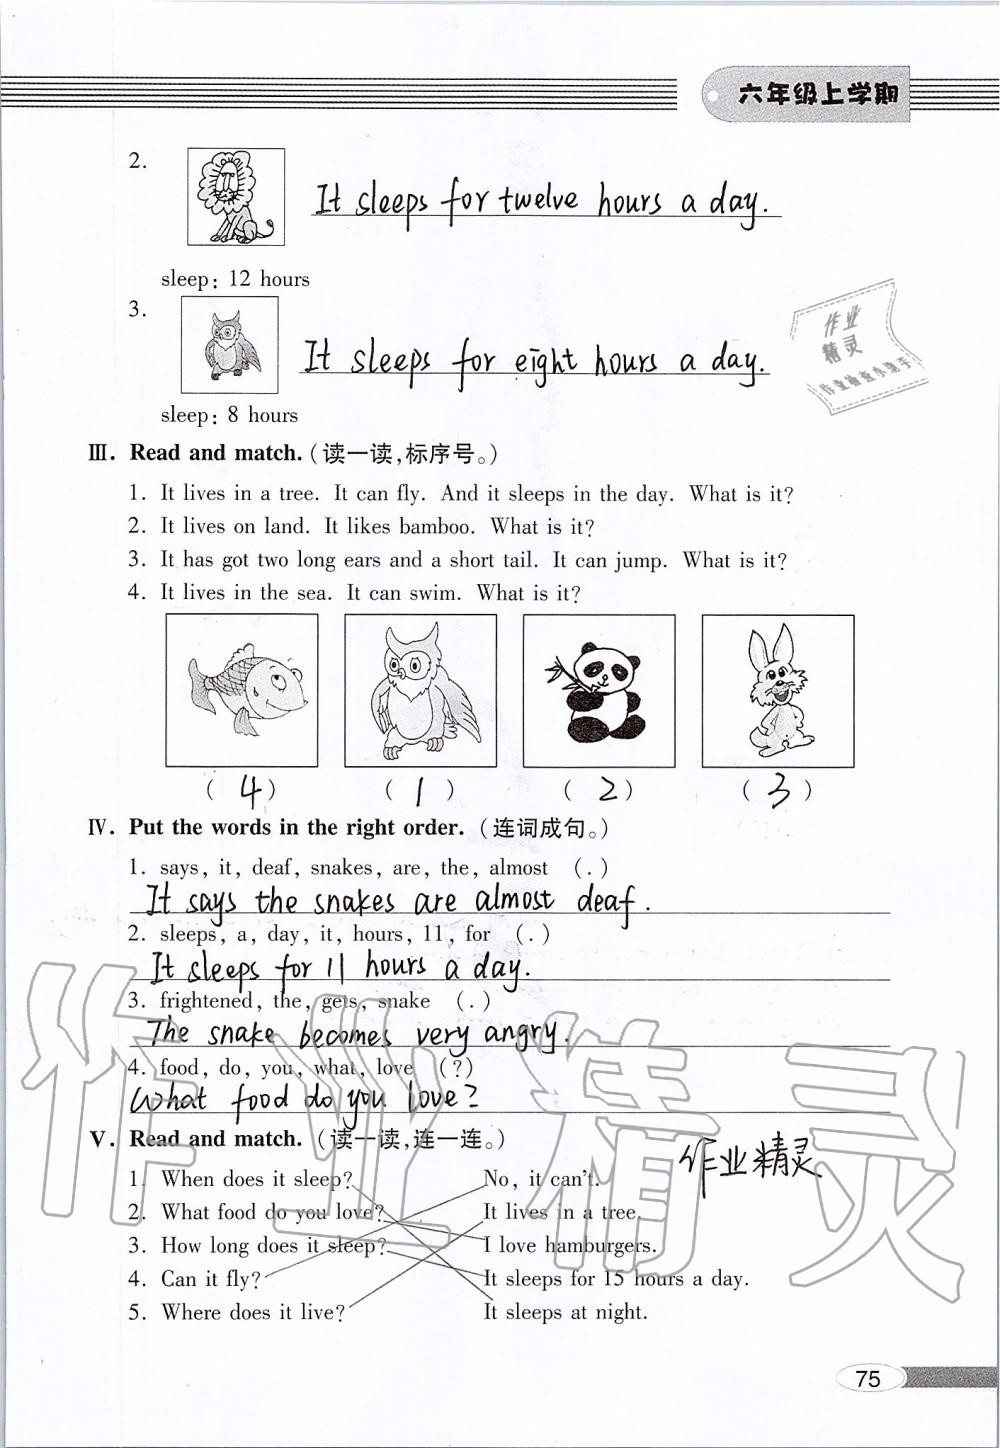 六年级上学期
2.
It sleeps for twelve hours a day.
sleep: 12 hours
3.
It sleeps for eight hours a day.
作业
精灵
作业检查小助手
sleep: 8 hours
Ⅲ. Read and match.(读一读,标序号。)
1. It lives in a tree. It can fly. And it sleeps in the day. What is it?
2. It lives on land. It likes bamboo. What is it?
3. It has got two long ears and a short tail. It can jump. What is it?
4. It lives in the sea. It can swim. What is it?
( 4 ) ( 1 ) ( 2 ) ( 3 )
Ⅳ. Put the words in the right order. (连词成句。)
1. says, it, deaf, snakes, are, the, almost (.)
It says the snakes are almost deaf.
2. sleeps, a, day, it, hours, 11, for (.)
It sleeps for 11 hours a day.
3. frightened, the, gets, snake (.)
The snake becomes very angry.
4. food, do, you, what, love (?)
What food do you love?
Ⅴ. Read and match. (读一读,连一连。)
作业精灵
1. When does it sleep? No, it can't.
2. What food do you love? It lives in a tree.
3. How long does it sleep? I love hamburgers.
4. Can it fly? It sleeps for 15 hours a day.
5. Where does it live? It sleeps at night.
作业精灵
75